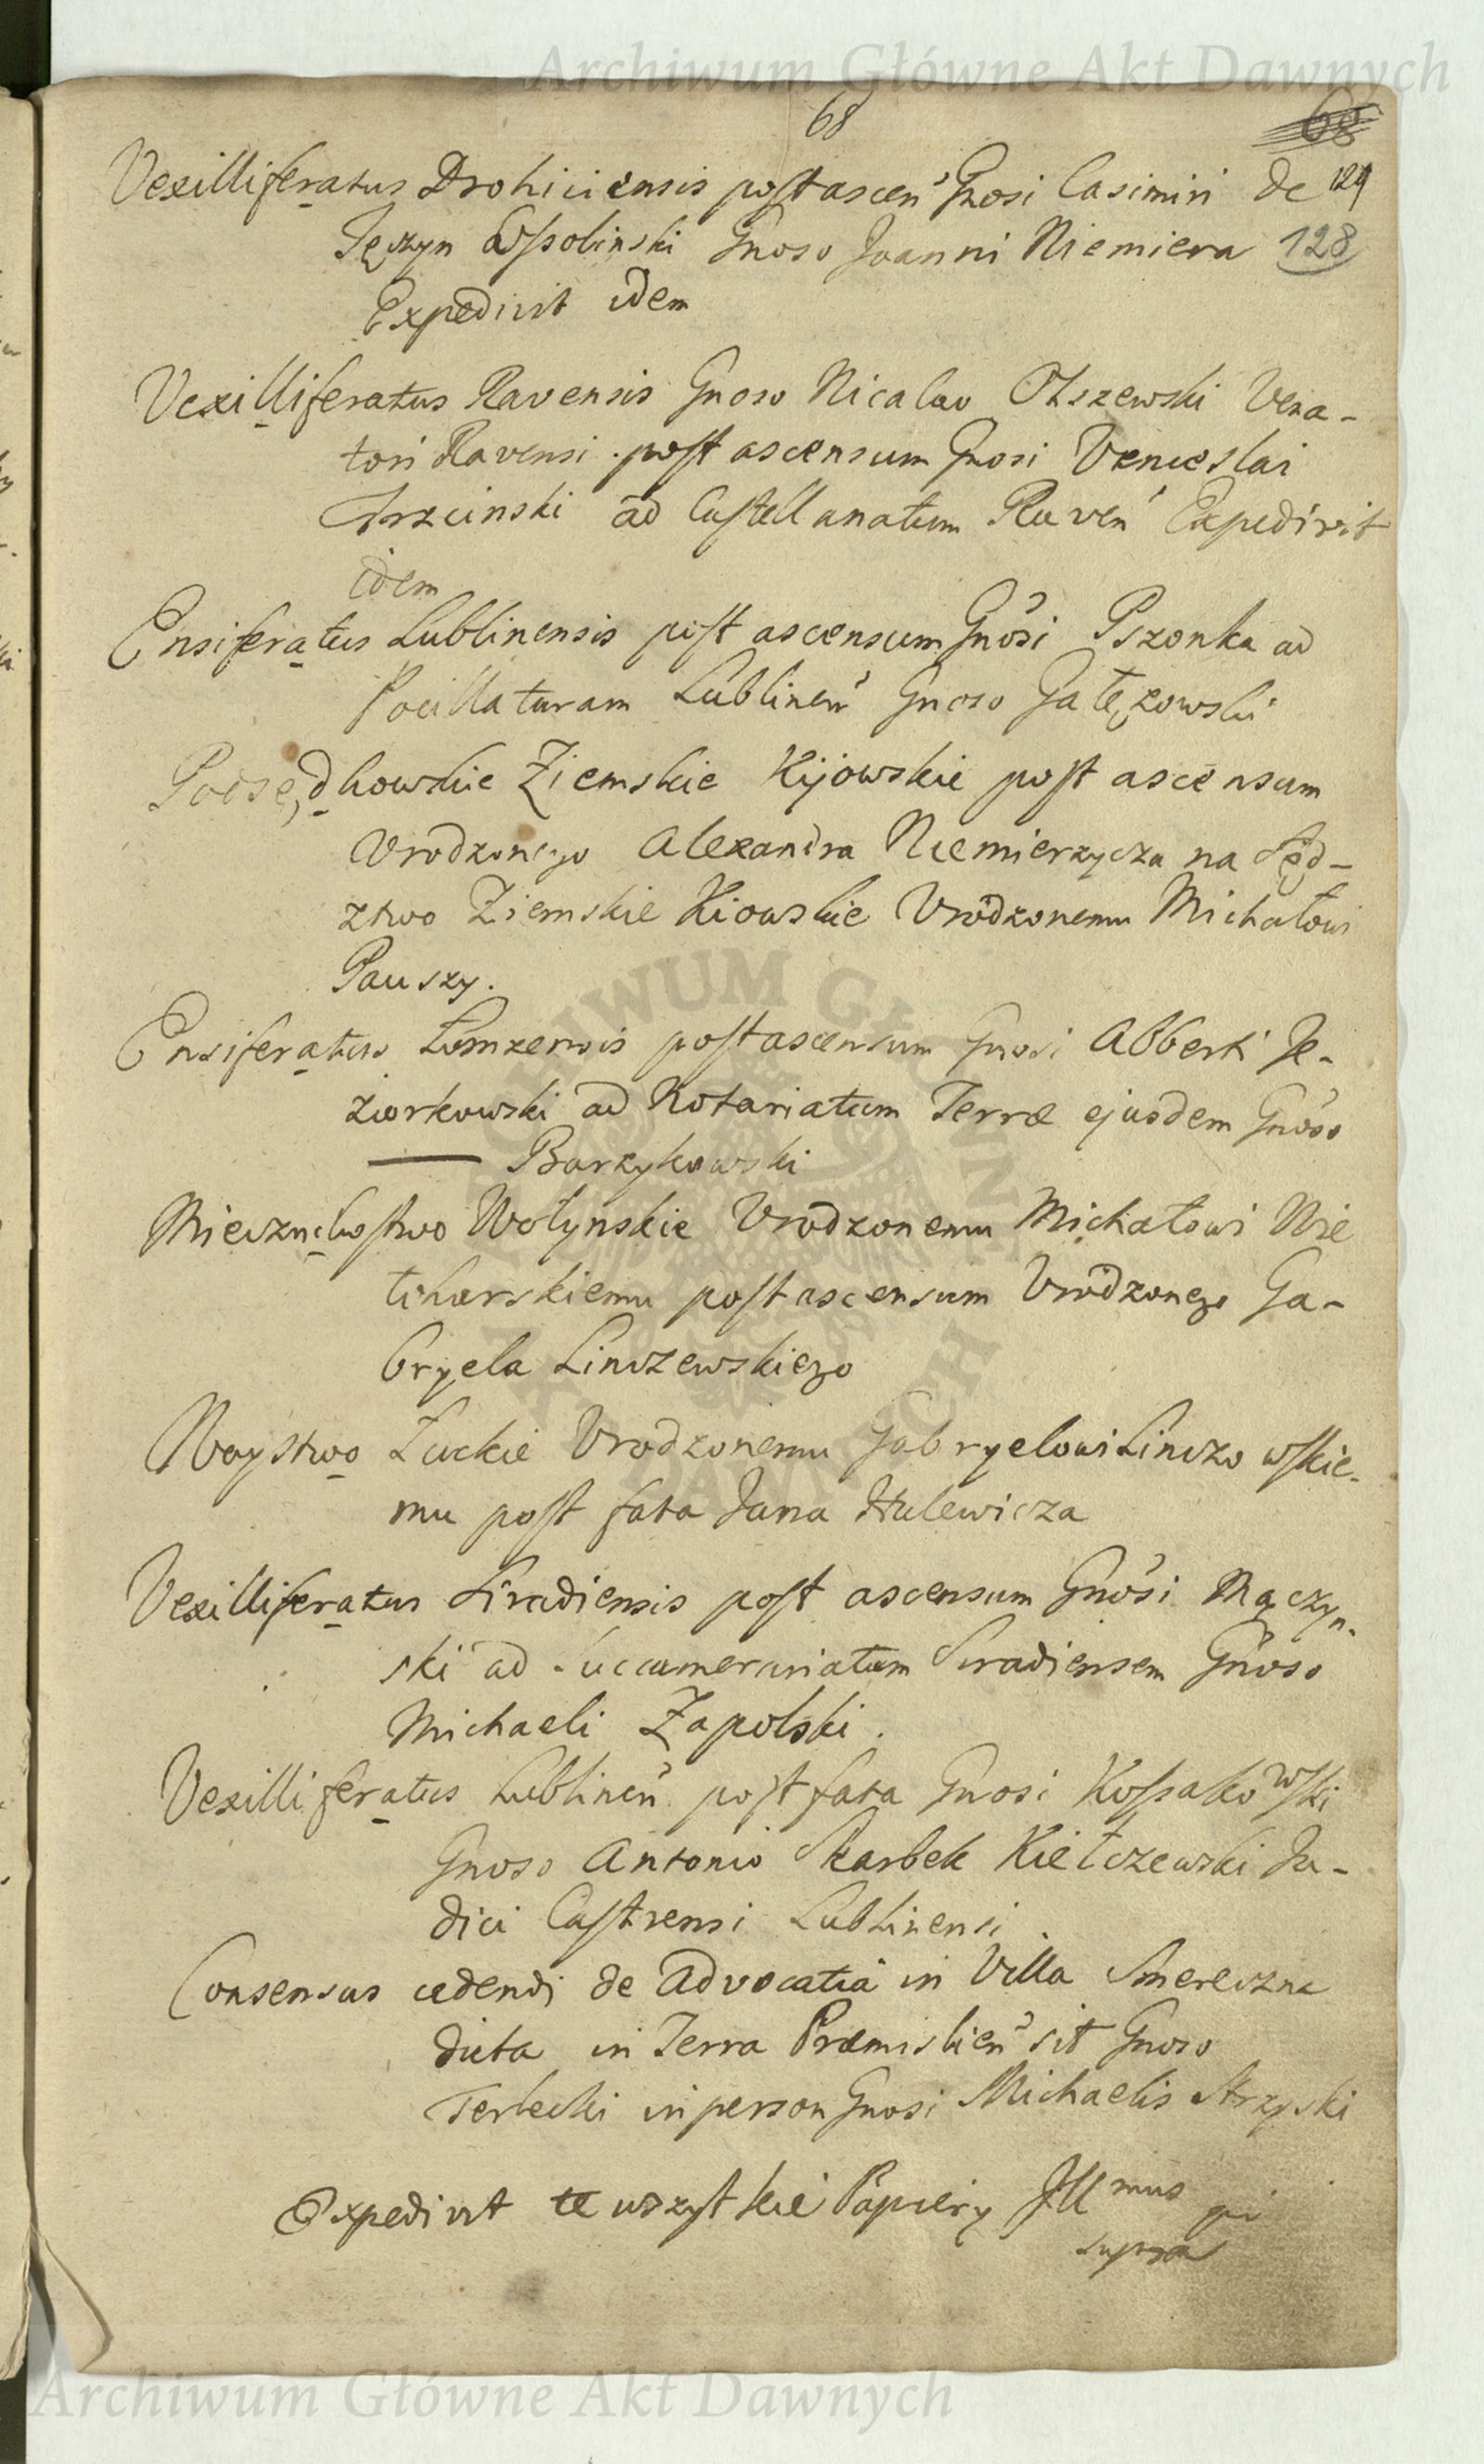 Archiwum Główne Akt Dawnych
68 68
Vexilliferatus Drohiciensis post ascen Gnosi Casimiri de 129
Tęczyn Ossolinski Gnoso Joanni Niemiera 128
Expedivit idem
Vexilliferatus Ravensis Gnoso Nicolao Olszewski Vena-
tori Ravensi post ascensum Gnosi Venceslai
Trzcinski ad Castellanatum Raven Expedivit
idem
Ensiferatus Lublinensis post ascensum Gnosi Pszonka ad
Pocillaturam Lublinen Gnoso Gałęzowski
Podsędkowskie Ziemskie Kijowskie post ascensum
Vrodzonego Alexandra Niemierzycza na Sęd-
ztwo Ziemskie Kiowskie Vrodzonemu Michałowi
Pauszy.
Ensiferatus Lomzensis post ascensum Gnosi Alberti Je-
ziorkowski ad Notariatum Terræ ejusdem Gnoso
Barzykowski
Miecznikostwo Wołynskie Vrodzonemu Michałowi Nie
licharskiemu post ascensum Vrodzonego Ga-
bryela Linczewskiego
Woystwo Łuckie Vrodzonemu Gabryelowi Linczowskie-
mu post fata Jana Hulewicza
Vexilliferatus Siradiensis post ascensum Gnosi Mączyn-
ski ad Succamerariatum Siradiensem Gnoso
Michaeli Zapolski.
Vexilliferatus Lublinen post fata Gnosi Kossakowski
Gnoso Antonio Skarbek Kiełczewski Ju-
dici Castrensi Lublinensi
Consensus cedendi de Advocatia in Villa Smereczna
dicta in Terra Præmislien sit Gnoso
Terlecki in person Gnosi Michaelis Strzyski
Expedivit te wszytkie Papiery Illmus
supra
Archiwum Główne Akt Dawnych